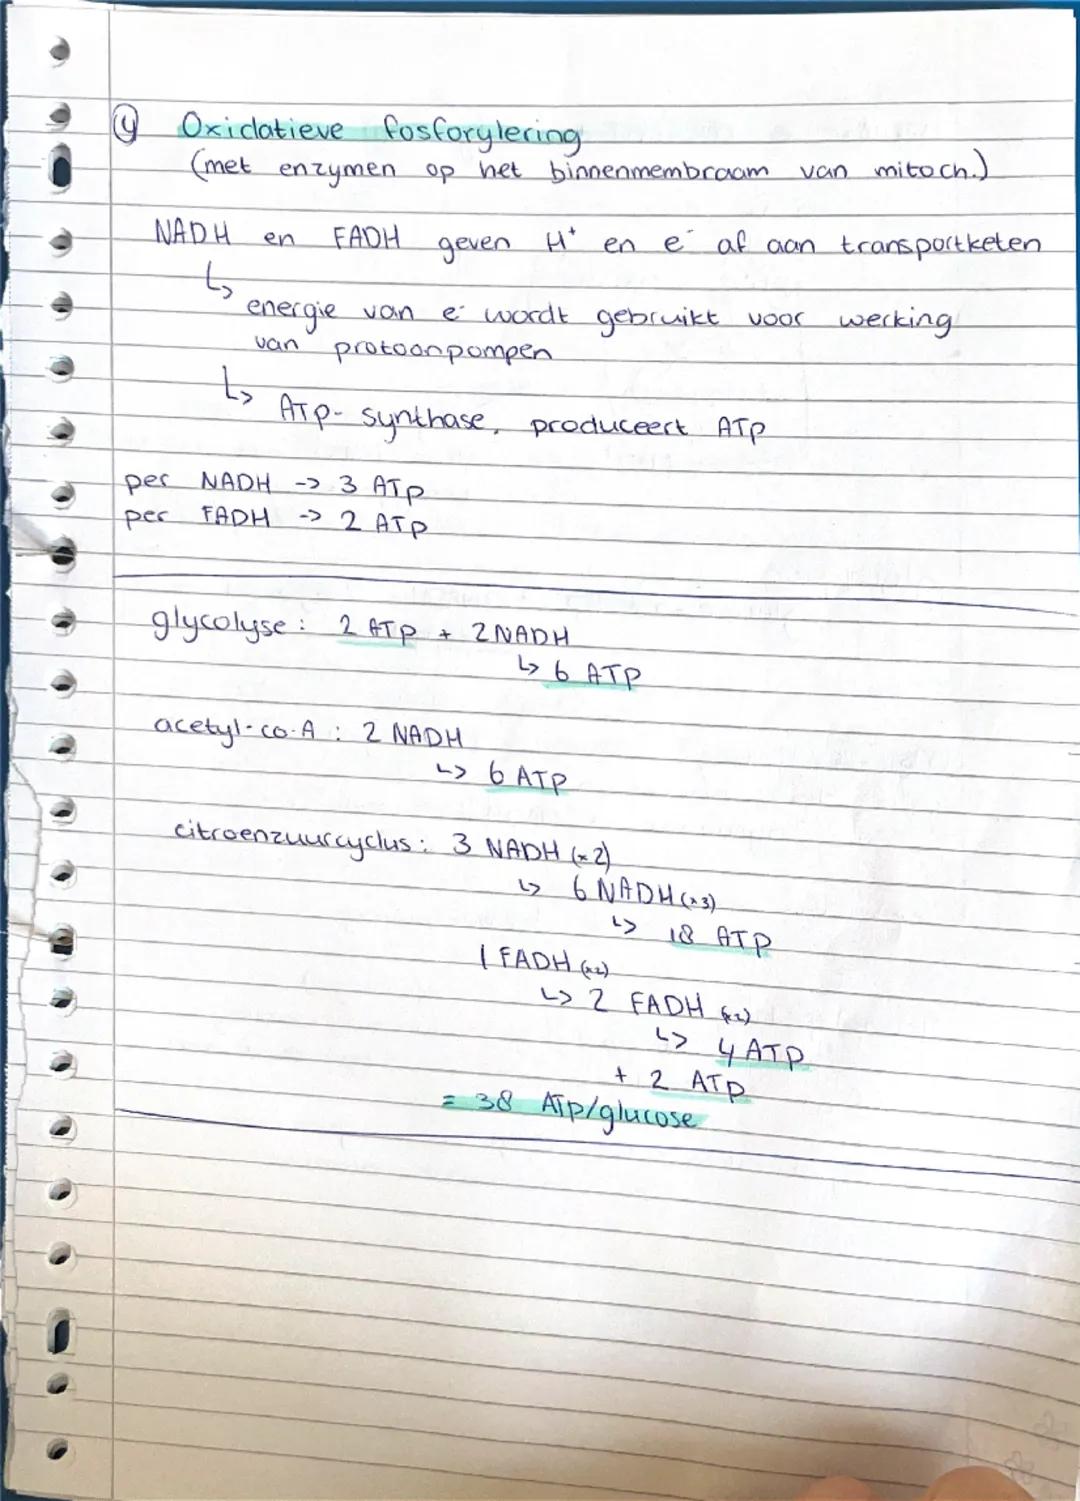 ④ Oxidatieve fosforylering
(met enzymen op het binnenmembraam van mitoch.)
NADH en FADH geven H⁺ en e⁻ af aan transportketen
↳ energie van e⁻ wordt gebruikt voor werking
van protoonpompen
↳ ATP-synthase, produceert ATP
per NADH -> 3 ATP
per FADH -> 2 ATP
glycolyse: 2 ATP + 2 NADH
↳ 6 ATP
acetyl-co-A: 2 NADH
↳ 6 ATP
citroenzuurcyclus: 3 NADH (×2)
↳ 6 NADH (×3)
↳ 18 ATP
1 FADH (×2)
↳ 2 FADH (×2)
↳ 4 ATP
+ 2 ATP
= 38 ATP/glucose